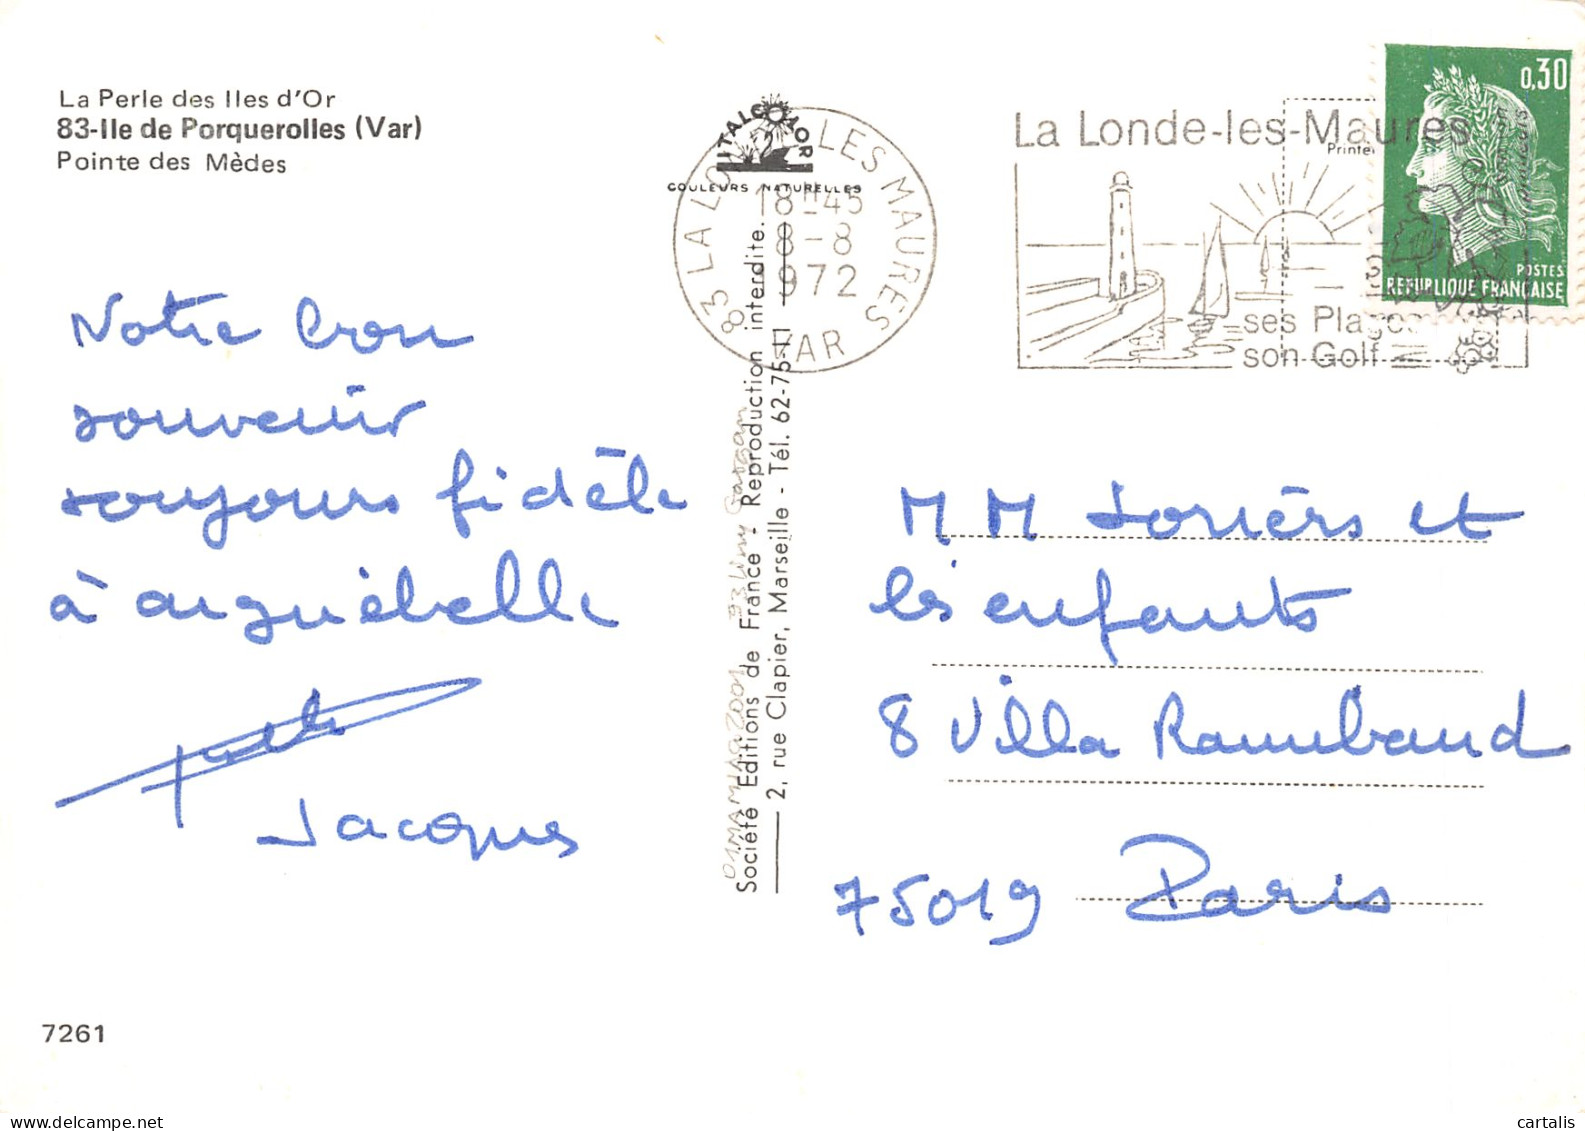 La Perle des Iles d'Or
83-Ile de Porquerolles (Var)
Pointe des Mèdes
Notre bon
souvenir
toujours fidèle
à aiguèbelle
Jacques
7261
ITALCOLOR
COULEURS NATURELLES
83 LA LONDE LES MAURES
VAR
18H45
8-8
1972
Société Editions de France - Reproduction interdite.
2, rue Clapier, Marseille - Tél. 62-75-11
La Londe-les-Maures
ses Plages
son Golf
0,30
POSTES
REPUBLIQUE FRANÇAISE
M M Loriers et
les enfants
8 Villa Rambaud
75019 Paris
www.delcampe.net
cartalis